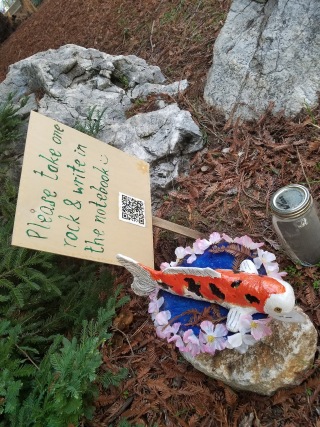 Please take one
rock & write in
the notebook :)